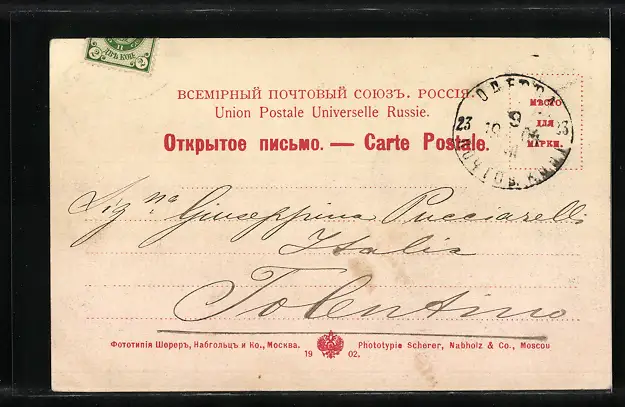 2 ДВѢ КОП. 2
ВСЕМІРНЫЙ ПОЧТОВЫЙ СОЮЗЪ. РОССІЯ.
Union Postale Universelle Russie.
Открытое письмо. — Carte Postale.
МѢСТО
ДЛЯ
МАРКИ.
ОДЕССА
23
9
19
Signa Giuseppina Pucciarelli
Italia
Tolentino
Фототипія Шереръ, Набгольцъ и Ко., Москва.
1902.
Phototypie Scherer, Nabholz & Co., Moscou